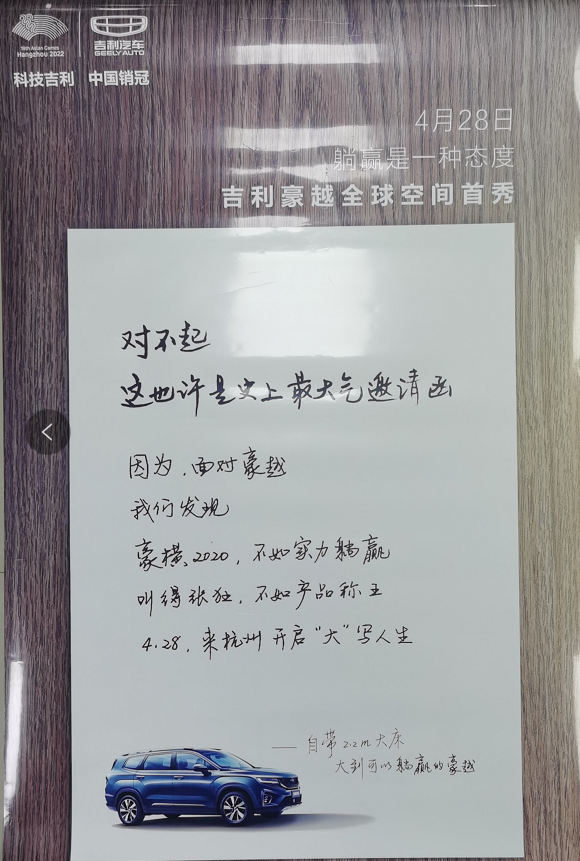 19th Asian Games
Hangzhou 2022
吉利汽车
GEELY AUTO
科技吉利 中国销冠
4月28日
躺赢是一种态度
吉利豪越全球空间首秀
对不起
这也许是史上最大气邀请函
因为,面对豪越
我们发现
豪横2020,不如实力躺赢
叫得张狂,不如产品称王
4.28,来杭州开启“大”写人生
——自带2.2m大床
大到可以躺赢的豪越